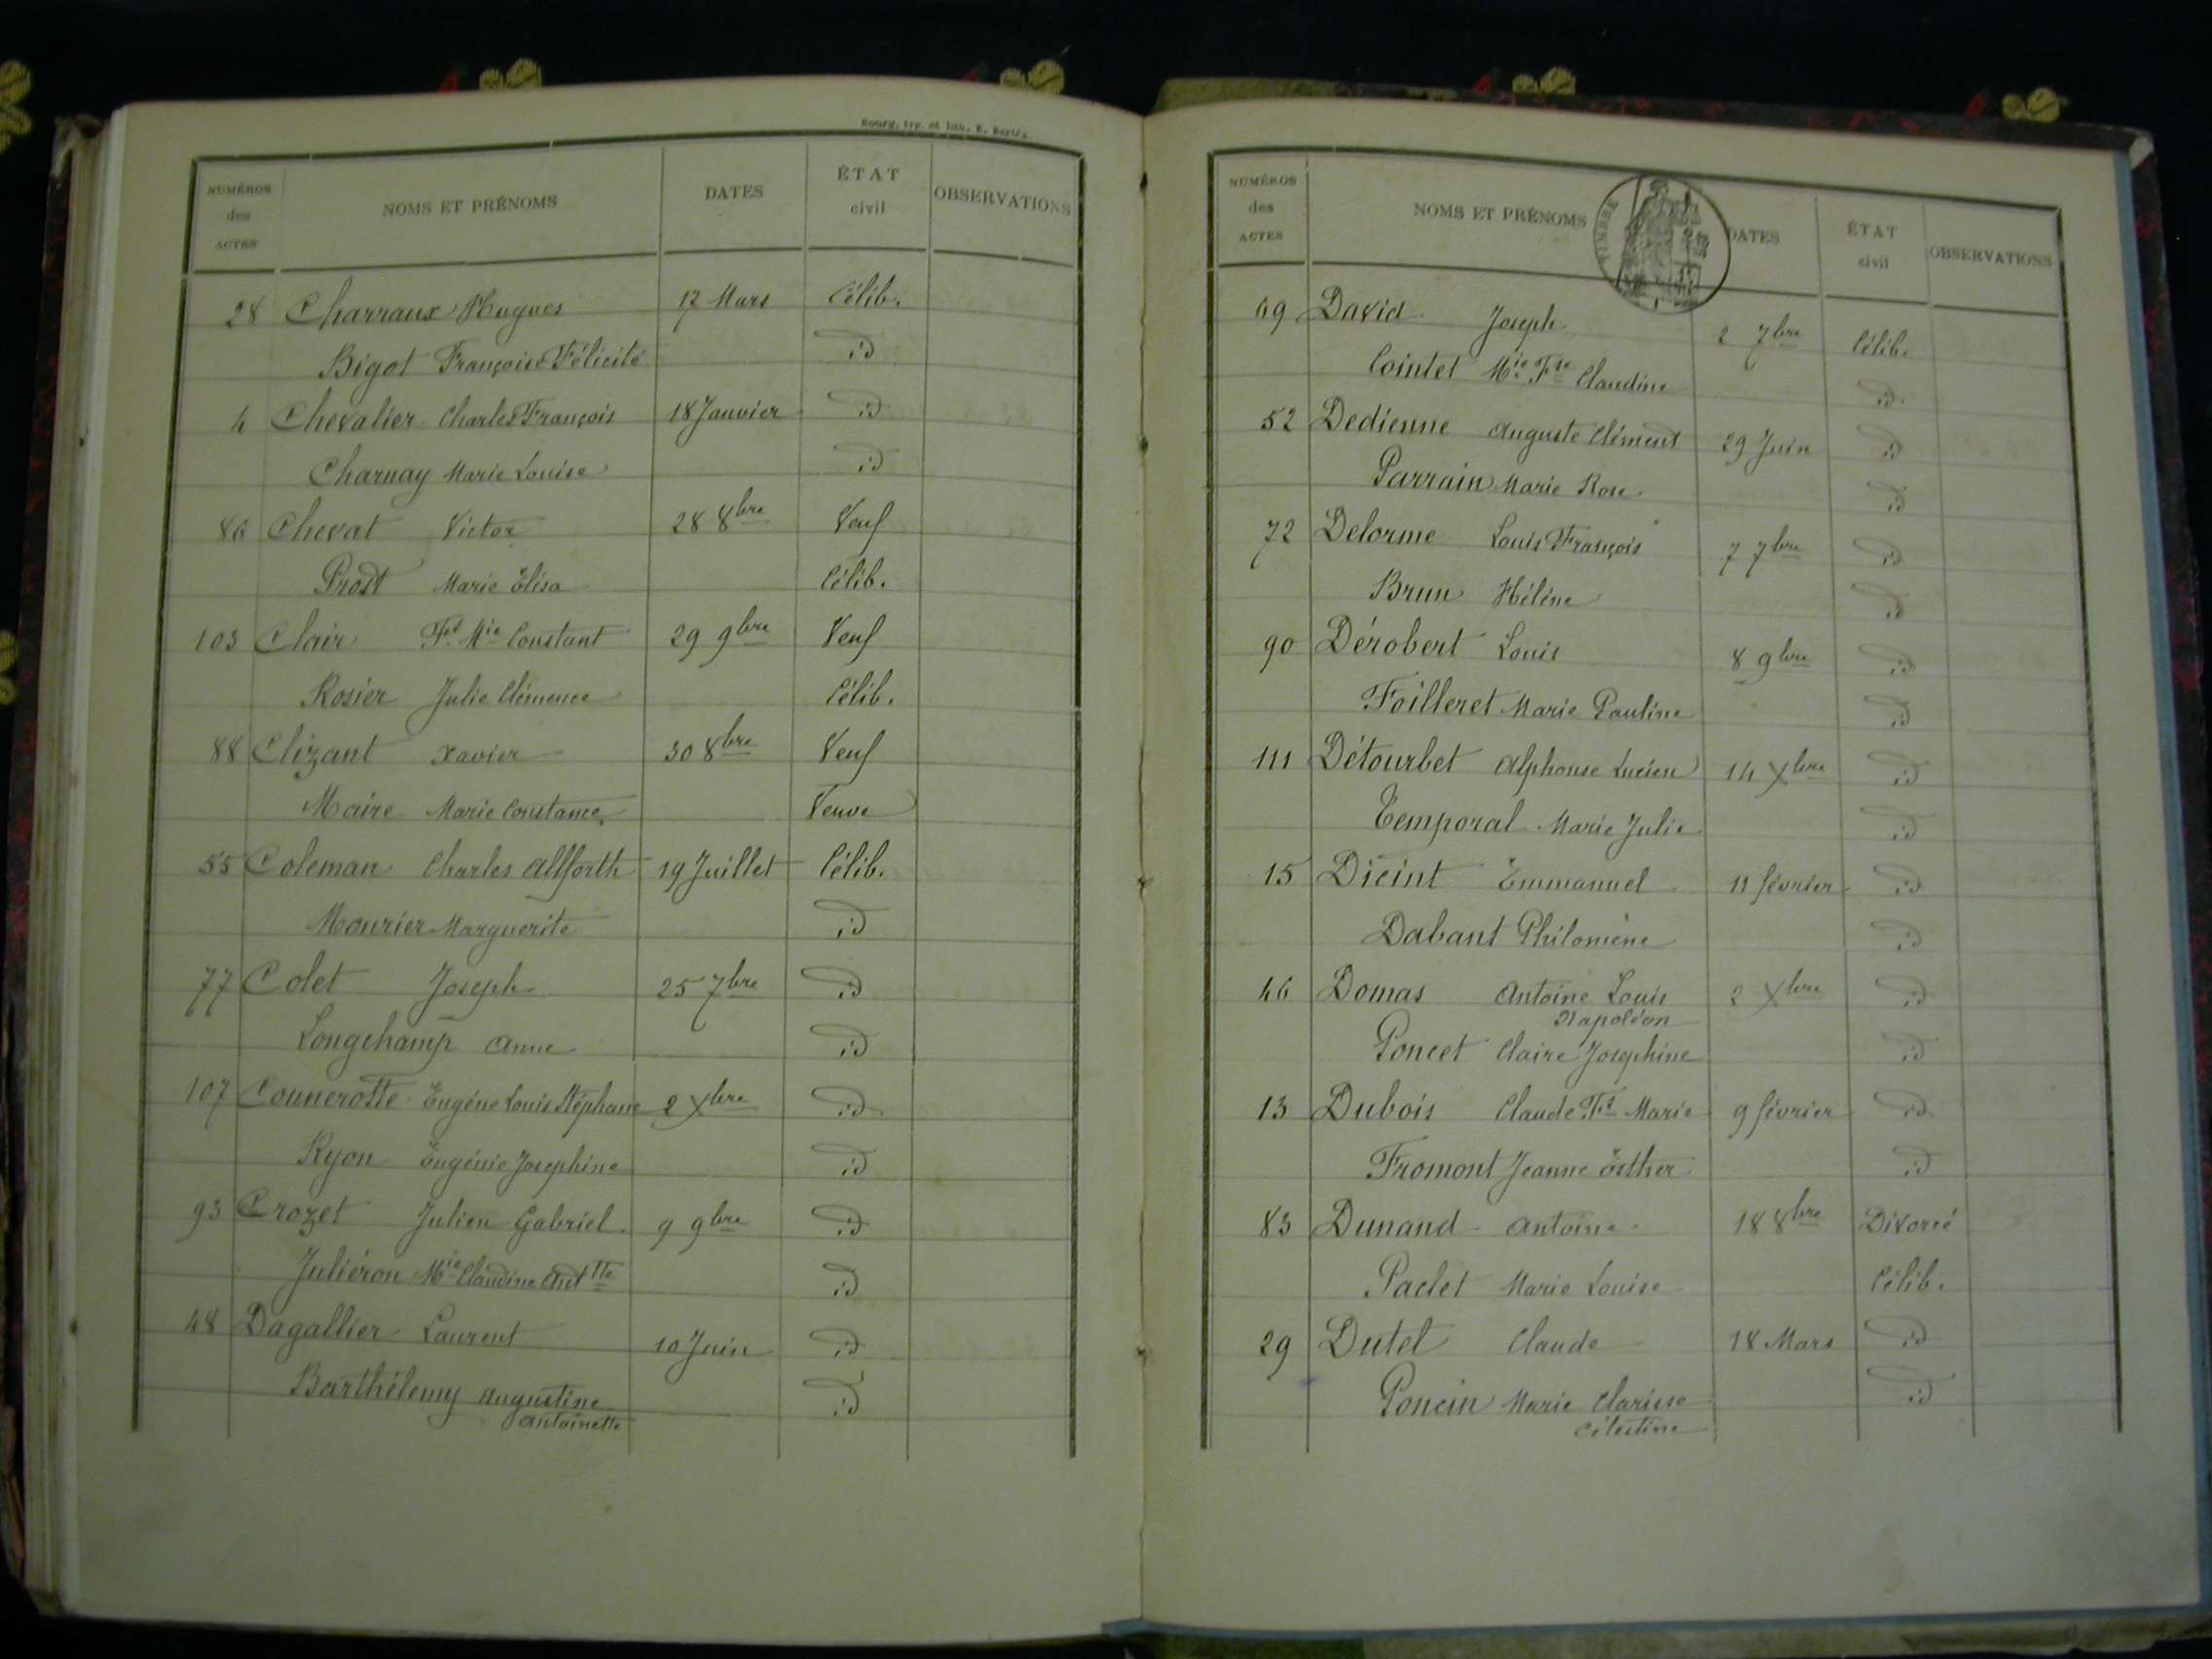 Bourg, typ. et lith. E.
NUMÉROS des ACTES NOMS ET PRÉNOMS DATES ÉTAT civil OBSERVATIONS
28 Charraux Hugues 17 Mars Célib.
Bigot Françoise Félicité id
4 Chevalier Charles François 18 Janvier id
Charnay Marie Louise id
86 Chevat Victor 28 8bre Veuf
Prost Marie Élisa Célib.
103 Clair Fs Mie Constant 29 9bre Veuf
Rosier Julie Clémence Célib.
88 Clizant Xavier 30 8bre Veuf
Maire Marie Constance Veuve
55 Coleman Charles Allforth 19 Juillet Célib.
Mourier Marguerite id
77 Colet Joseph 25 7bre id
Longchamp Anne id
107 Counerotte Eugène Louis Stéphane 2 Xbre id
Ryon Eugénie Josephine id
93 Crozet Julien Gabriel 9 9bre id
Juliéron Mie Claudine Anttte id
48 Dagallier Laurent 10 Juin id
Barthélemy Augustine id
Antoinette
NUMÉROS des ACTES NOMS ET PRÉNOMS DATES ÉTAT civil OBSERVATIONS
TIMBRE
69 David Joseph 2 7bre Célib.
Cointet Mie Fse Claudine id
52 Dedienne Auguste Clément 29 Juin id
Parrain Marie Rose id
72 Delorme Louis François 7 7bre id
Brun Hélène id
90 Dérobert Louis 8 9bre id
Foilleret Marie Pauline id
111 Détourbet Alphonse Lucien 14 Xbre id
Temporal Marie Julie id
15 Dicint Emmanuel 11 février id
Dabant Philomène id
46 Domas Antoine Louis 2 Xbre id
Napoléon
Poncet Claire Josephine id
13 Dubois Claude Fs Marie 9 février id
Fromont Jeanne Esther id
83 Dunand Antoine 18 8bre Divorcé
Paclet Marie Louise Célib.
29 Dutel Claude 18 Mars id
Poncin Marie Clarisse id
Célestine